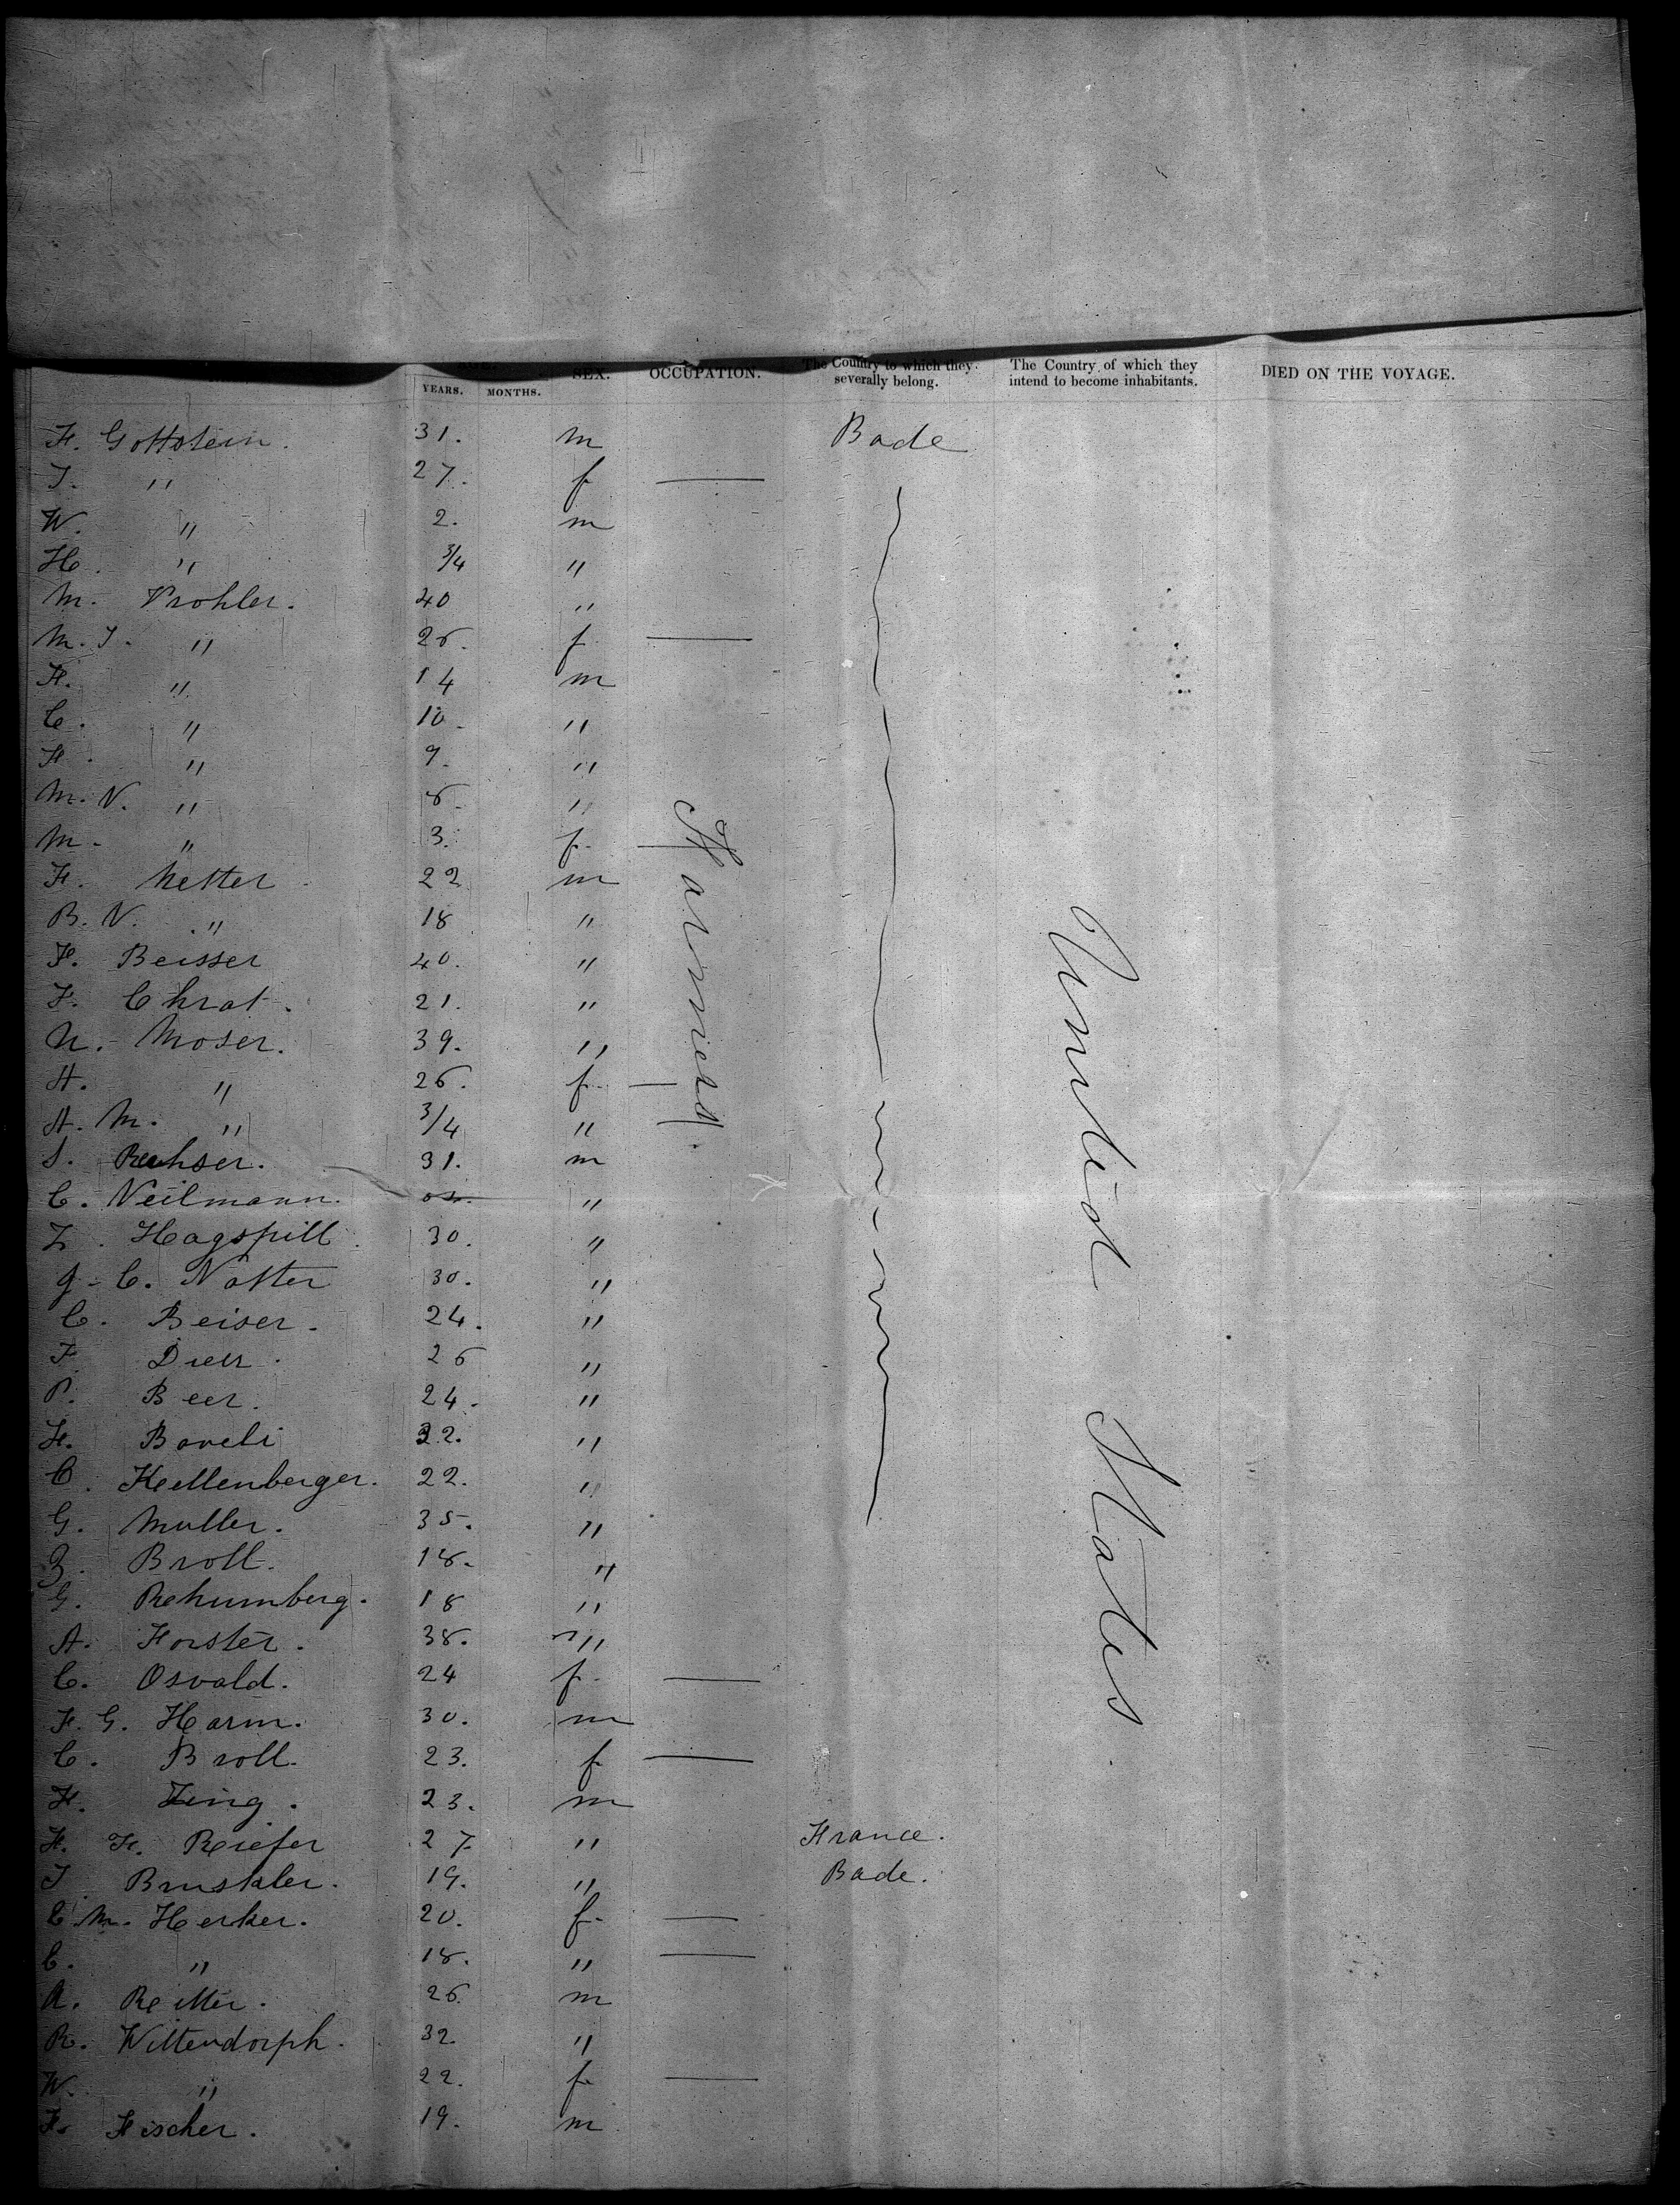 AGE. SEX. OCCUPATION. The Country to which they severally belong. The Country of which they intend to become inhabitants. DIED ON THE VOYAGE.
YEARS. MONTHS.
F. Gottstein. 31. m Bade
J. " 27. f —
W. " 2. m
H. " 3/4 "
M. Prohler. 40 "
M. J. " 26. f —
F. " 14 m
C. " 10. "
F. " 9. "
M. N. " 8. "
M. " 3. f. —
F. Netter 22 m
B. N. " 18 "
F. Beisser 40. "
F. Chrat. 21. "
N. Moser. 39. "
A. " 26. f. —
A. M. " 3/4 "
S. 31. m
C. Neilmann. "
Z. Hagspill 30. "
G. C. Natter 30. "
C. Beiser. 24. "
F. 26 "
P. Beer. 24. "
F. Baveli 32. "
C. Kellenberger. 22. "
G. Muller. 35. "
Z. Broll. 18. "
G. Rehumberg. 18 "
A. Forster. 38. "
C. Osvald. 24 f. —
F. G. Harm. 30. m
C. Broll. 23. f —
F. Zing. 23. m
F. F. Reiefer 27 " France.
J. Bruskler. 19. " Bade.
C. M. Herker. 20. f. —
C. " 18. " —
A. Reitter. 26. m
R. Wittendorph. 32. "
W. " 22. f. —
F. Fischer. 19. m
Farmers.
United States.